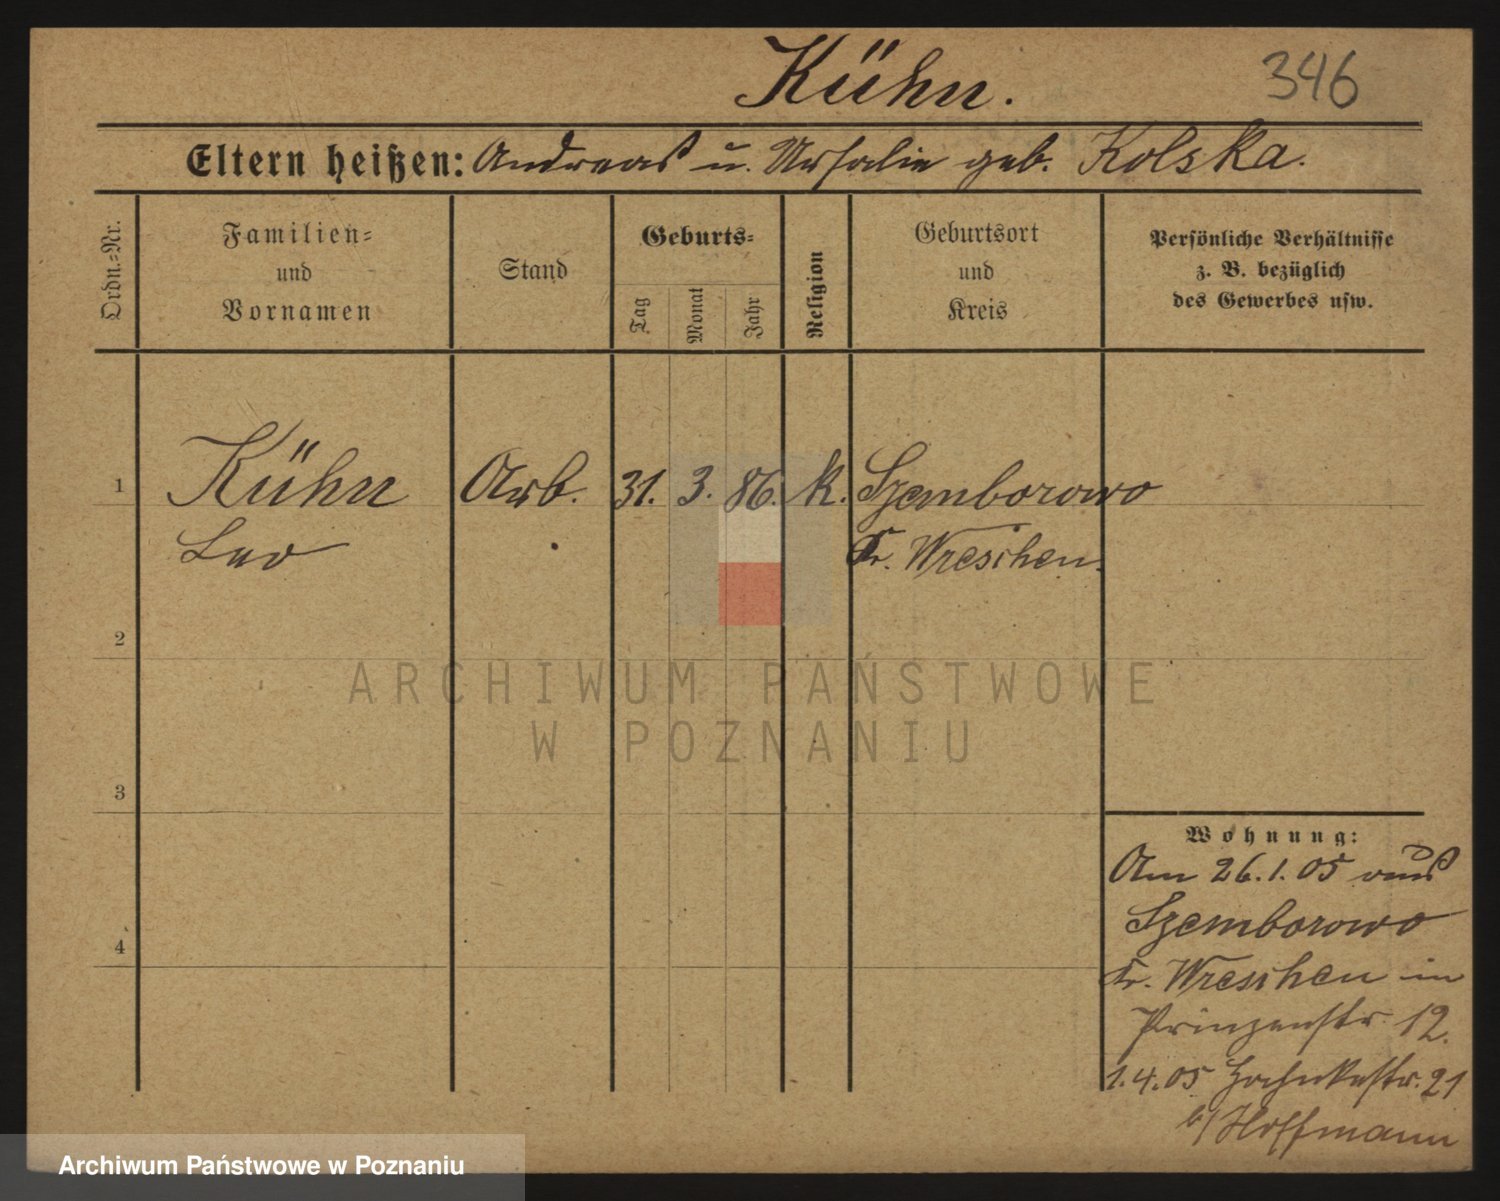 Kühn.
346
Eltern heißen: Andreas u. Ursalie geb. Kolska.
Ordn.-Nr.
Familien-
und
Vornamen
Stand
Geburts-
Tag
Monat
Jahr
Religion
Geburtsort
und
Kreis
Persönliche Verhältnisse
z. B. bezüglich
des Gewerbes usw.
1
Kühn
Leo
Arb.
31.
3.
86.
k.
Szemborowo
Kr. Wreschen.
2
3
4
Wohnung:
Am 26.1.05 aus
Szemborowo
Kr. Wreschen in
Prinzenstr. 12.
1.4.05 21
b/Hoffmann
ARCHIWUM PAŃSTWOWE
W POZNANIU
Archiwum Państwowe w Poznaniu